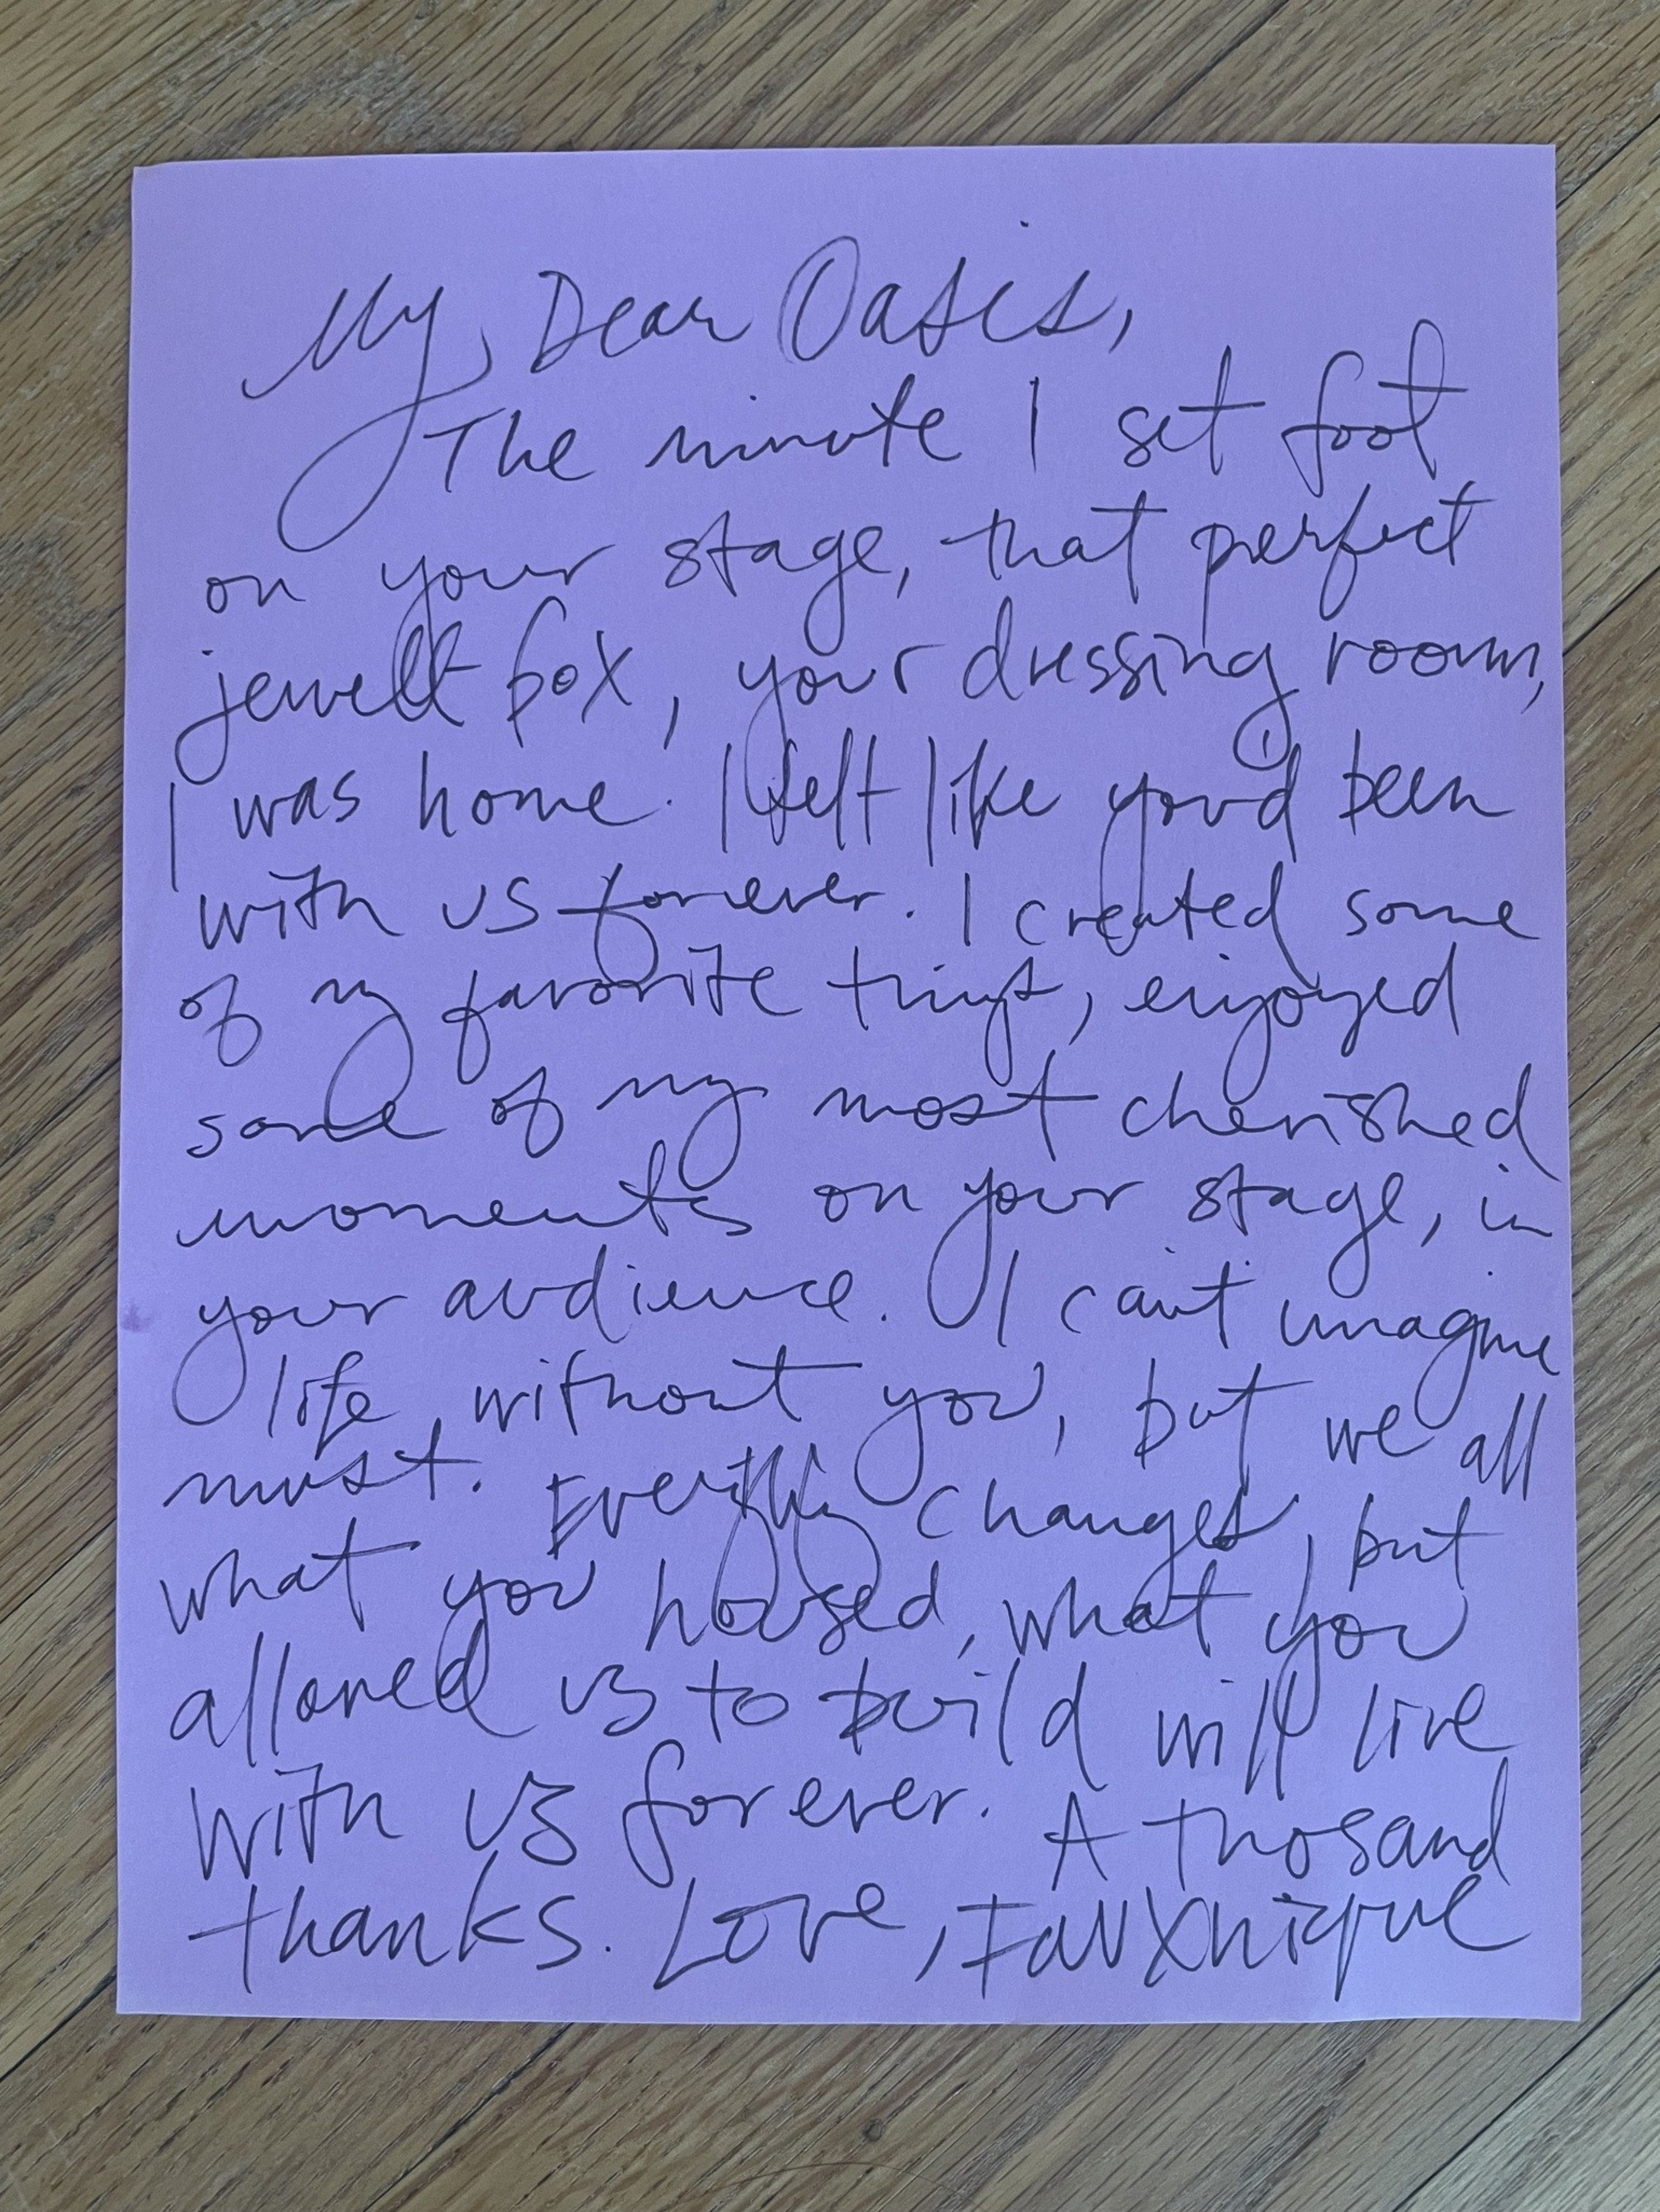 My Dear Oasis,
The minute I set foot
on your stage, that perfect
jewel box, your dressing room,
I was home. I felt like you'd been
with us forever. I created some
of my favorite things, enjoyed
some of my most cherished
moments on your stage, in
your audience. I can't imagine
life without you, but we all
must. Everything changes, but
what you housed, what you
allowed us to build will live
with us forever. A thosand
thanks. Love, Fauxnique